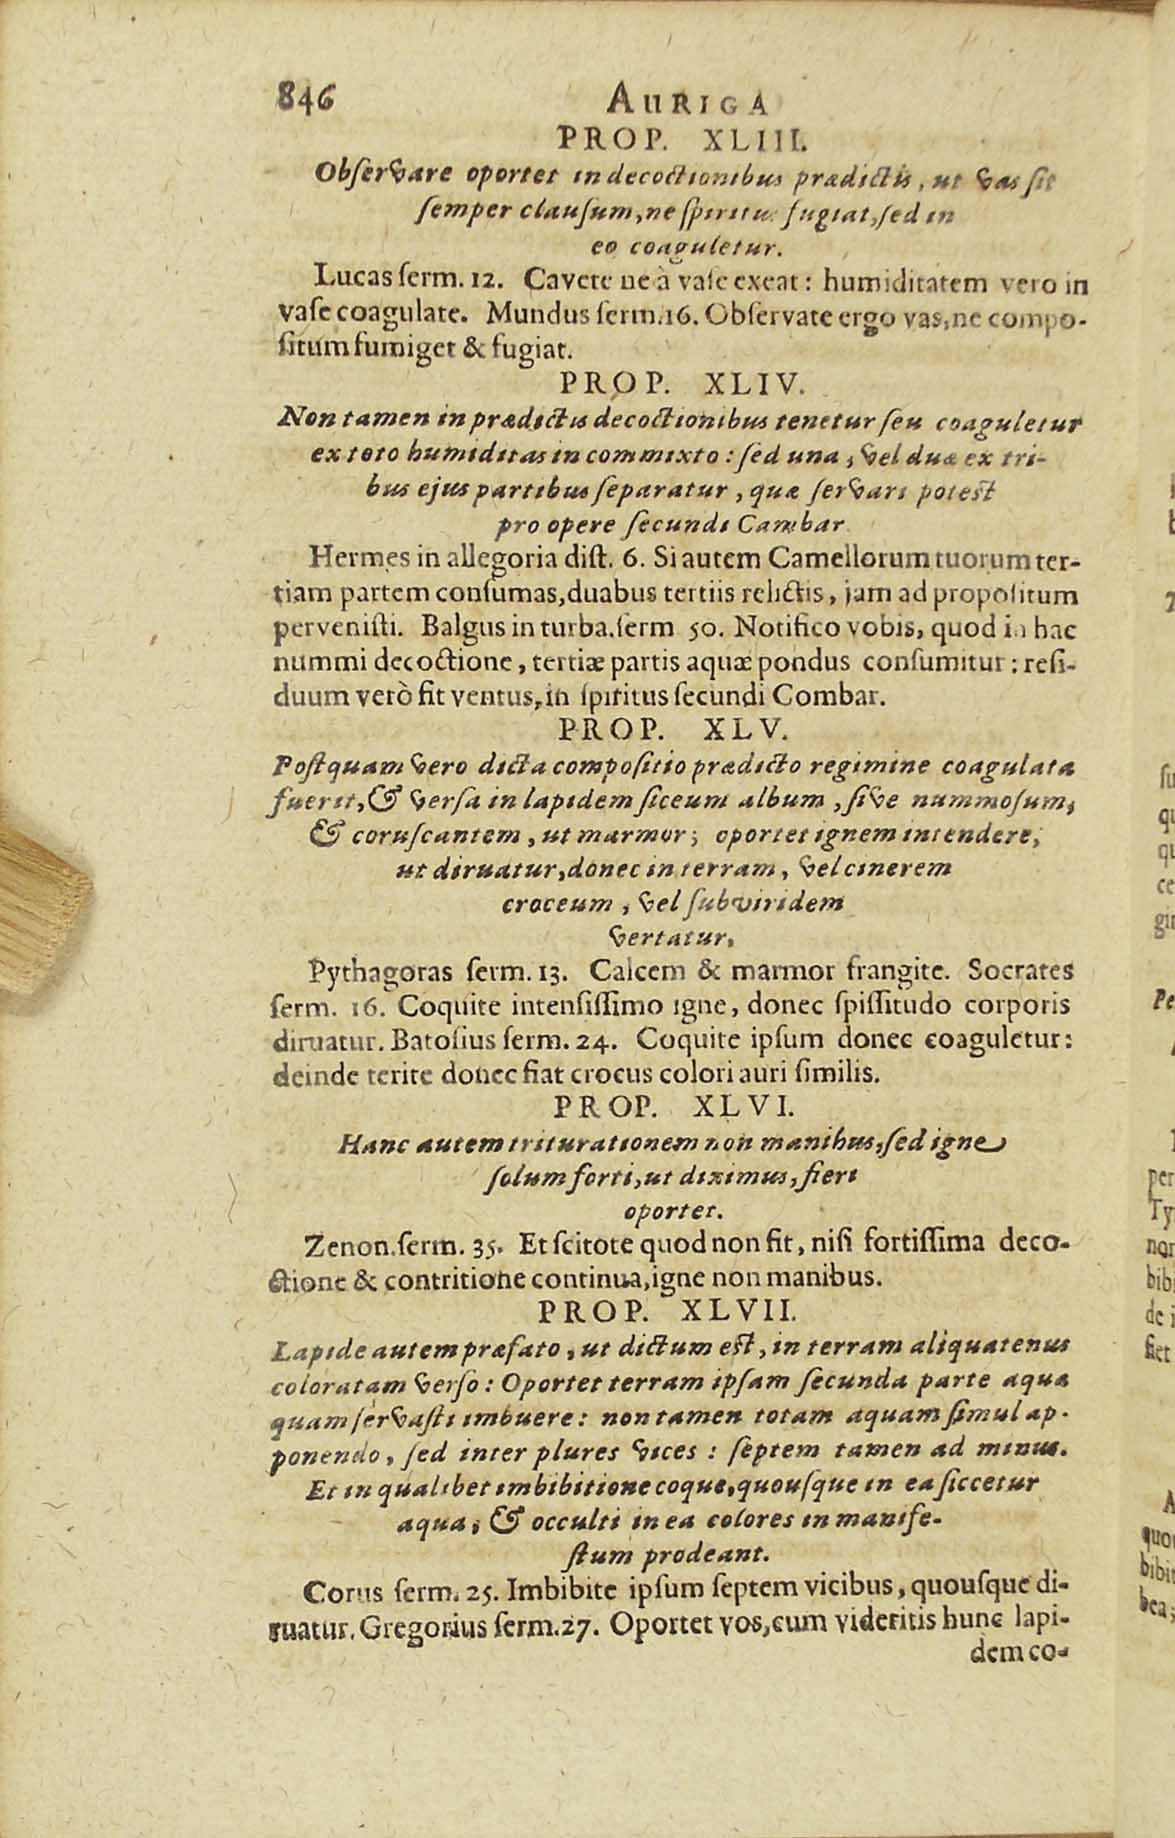 846 AURIGA
PROP. XLIII.
Obſervare oportet in decoctionibus prædictis, ut vas ſit
ſemper clauſum, ne ſpiritus fugiat, ſed in
eo coaguletur.
Lucas ſerm. 12. Cavete ne à vaſe exeat: humiditatem vero in
vaſe coagulate. Mundus ſerm. 16. Obſervate ergo vas, ne compo-
ſitum fumiget & fugiat.
PROP. XLIV.
Non tamen in prædictis decoctionibus tenetur ſeu coaguletur
ex toto humiditas in commixto: ſed una, vel duæ ex tri-
bus ejus partibus ſeparatur, quæ ſervari poteſt
pro opere ſecundi Cambar
Hermes in allegoria diſt. 6. Si autem Camellorum tuorum ter-
tiam partem conſumas, duabus tertiis relictis, jam ad propoſitum
perveniſti. Balgus in turba. ſerm 50. Notifico vobis, quod in hac
nummi decoctione, tertiæ partis aquæ pondus conſumitur: reſi-
duum verò fit ventus, in ſpiritus ſecundi Combar.
PROP. XLV.
Poſtquam vero dicta compoſitio prædicto regimine coagulata
fuerit, & verſa in lapidem ſiccum album, ſive nummoſum,
& coruſcantem, ut marmor; oportet ignem intendere,
ut diruatur, donec in terram, vel cinerem
croceum, vel ſubviridem
vertatur,
Pythagoras ſerm. 13. Calcem & marmor frangite. Socrates
ſerm. 16. Coquite intenſiſſimo igne, donec ſpiſſitudo corporis
diruatur. Batoſius ſerm. 24. Coquite ipſum donec coaguletur:
deinde terite donec fiat crocus colori auri ſimilis.
PROP. XLVI.
Hanc autem triturationem non manibus, ſed igne
ſolum forti, ut diximus, fieri
oportet.
Zenon. ſerm. 35. Et ſcitote quod non fit, niſi fortiſſima deco-
ctione & contritione continua, igne non manibus.
PROP. XLVII.
Lapide autem præfato, ut dictum eſt, in terram aliquatenus
coloratam verſo: Oportet terram ipſam ſecunda parte aqua
quam ſervaſti imbuere: non tamen totam aquam ſimul ap-
ponendo, ſed inter plures vices: ſeptem tamen ad minus.
Et in qualibet imbibitione coque, quouſque in ea ſiccetur
aqua; & occulti in ea colores in manife-
ſtum prodeant.
Corus ſerm. 25. Imbibite ipſum ſeptem vicibus, quouſque di-
ruatur. Gregorius ſerm. 27. Oportet vos, cum videritis hunc lapi-
dem co-